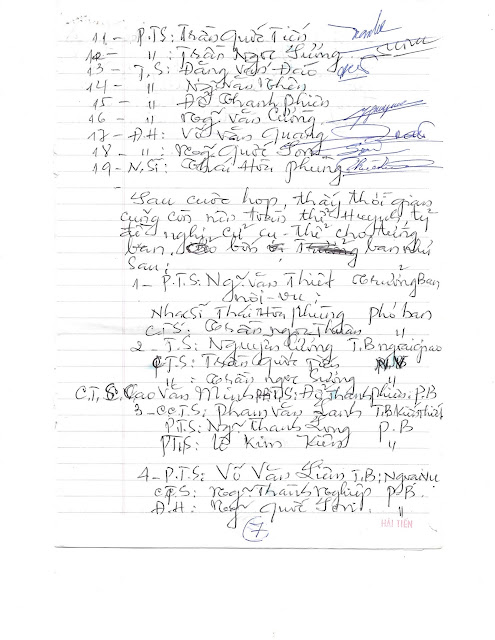 11- P.TS: Trần Quốc Tiến
12- " : Trần Ngọc Sương
13- T.S: Đặng Văn Đào
14- " Ng~ Văn Nhiên
15- " Đỗ Thanh Phiên
16- " Ng~. Văn Cường
17- Đ.H: Võ Văn Quang
18- ": Ng~. Quốc Sơn
19- N.Sĩ: Thái Hòa Phùng
Sau cuộc họp, thấy thời gian
cũng còn nên toàn thể Huynh, tỷ
đề nghị cử cụ-thể cho từng
ban, có bốn ban như
sau:
1- P.T.S: Ng~. Văn Thiệt Trưởng Ban
nội-vụ;
Nhạc Sĩ Thái Hòa Phùng phó ban
C.T.S: Trần ngọc Thuần "
2- T.S: Nguyễn Cường T.B ngoại giao
C.T.S: Trần Quốc Tiến
": Trần ngọc Sương "
C.T.S. Cao Văn Minh P.B T.S: Đỗ Thanh Phiên: P.B
3- C.T.S: Phạm Văn Lanh T.B Kiến thiết
P.T.S: Ng~ Thanh Long P.B
P.T.S: Lê Kim Kiên "
4- P.T.S: Võ Văn Liêm T.B: Nghi lễ
C.T.S: Ng~ Thành Nghiệp P.B.
Đ.H: Ng~. Quốc Sơn. "
7
HẢI TIẾN